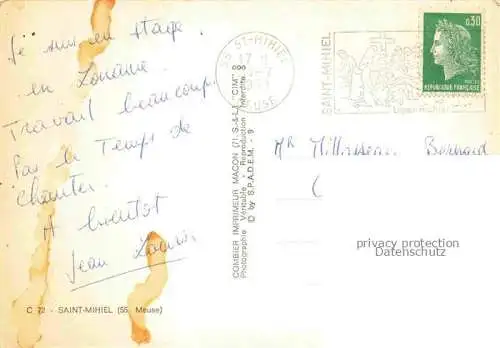 Je suis en stage
en Lorraine
Travail beaucoup
Pas le temps de
chanter.
A bientôt
Jean
C 72 - SAINT-MIHIEL (55. Meuse)
COMBIER IMPRIMEUR MACON (71. S.-&-L.) "CIM"
Photographie Véritable - Reproduction Interdite
© by S.P.A.D.E.M. - 9
55 ST-MIHIEL
MEUSE
SAINT-MIHIEL
0,30
REPUBLIQUE FRANÇAISE
Mr Bernard
privacy protection
Datenschutz